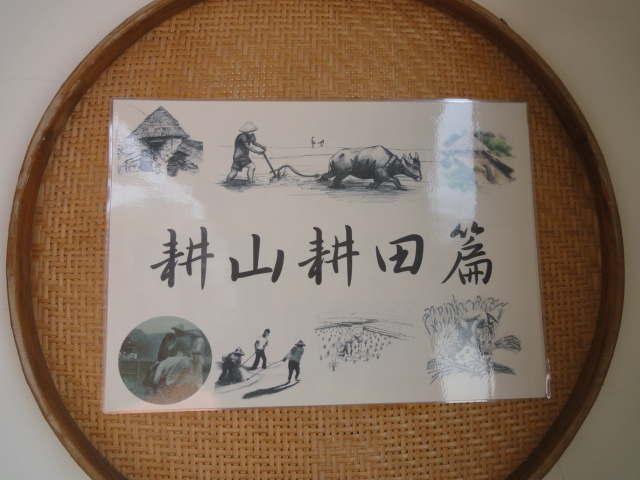 耕山耕田篇